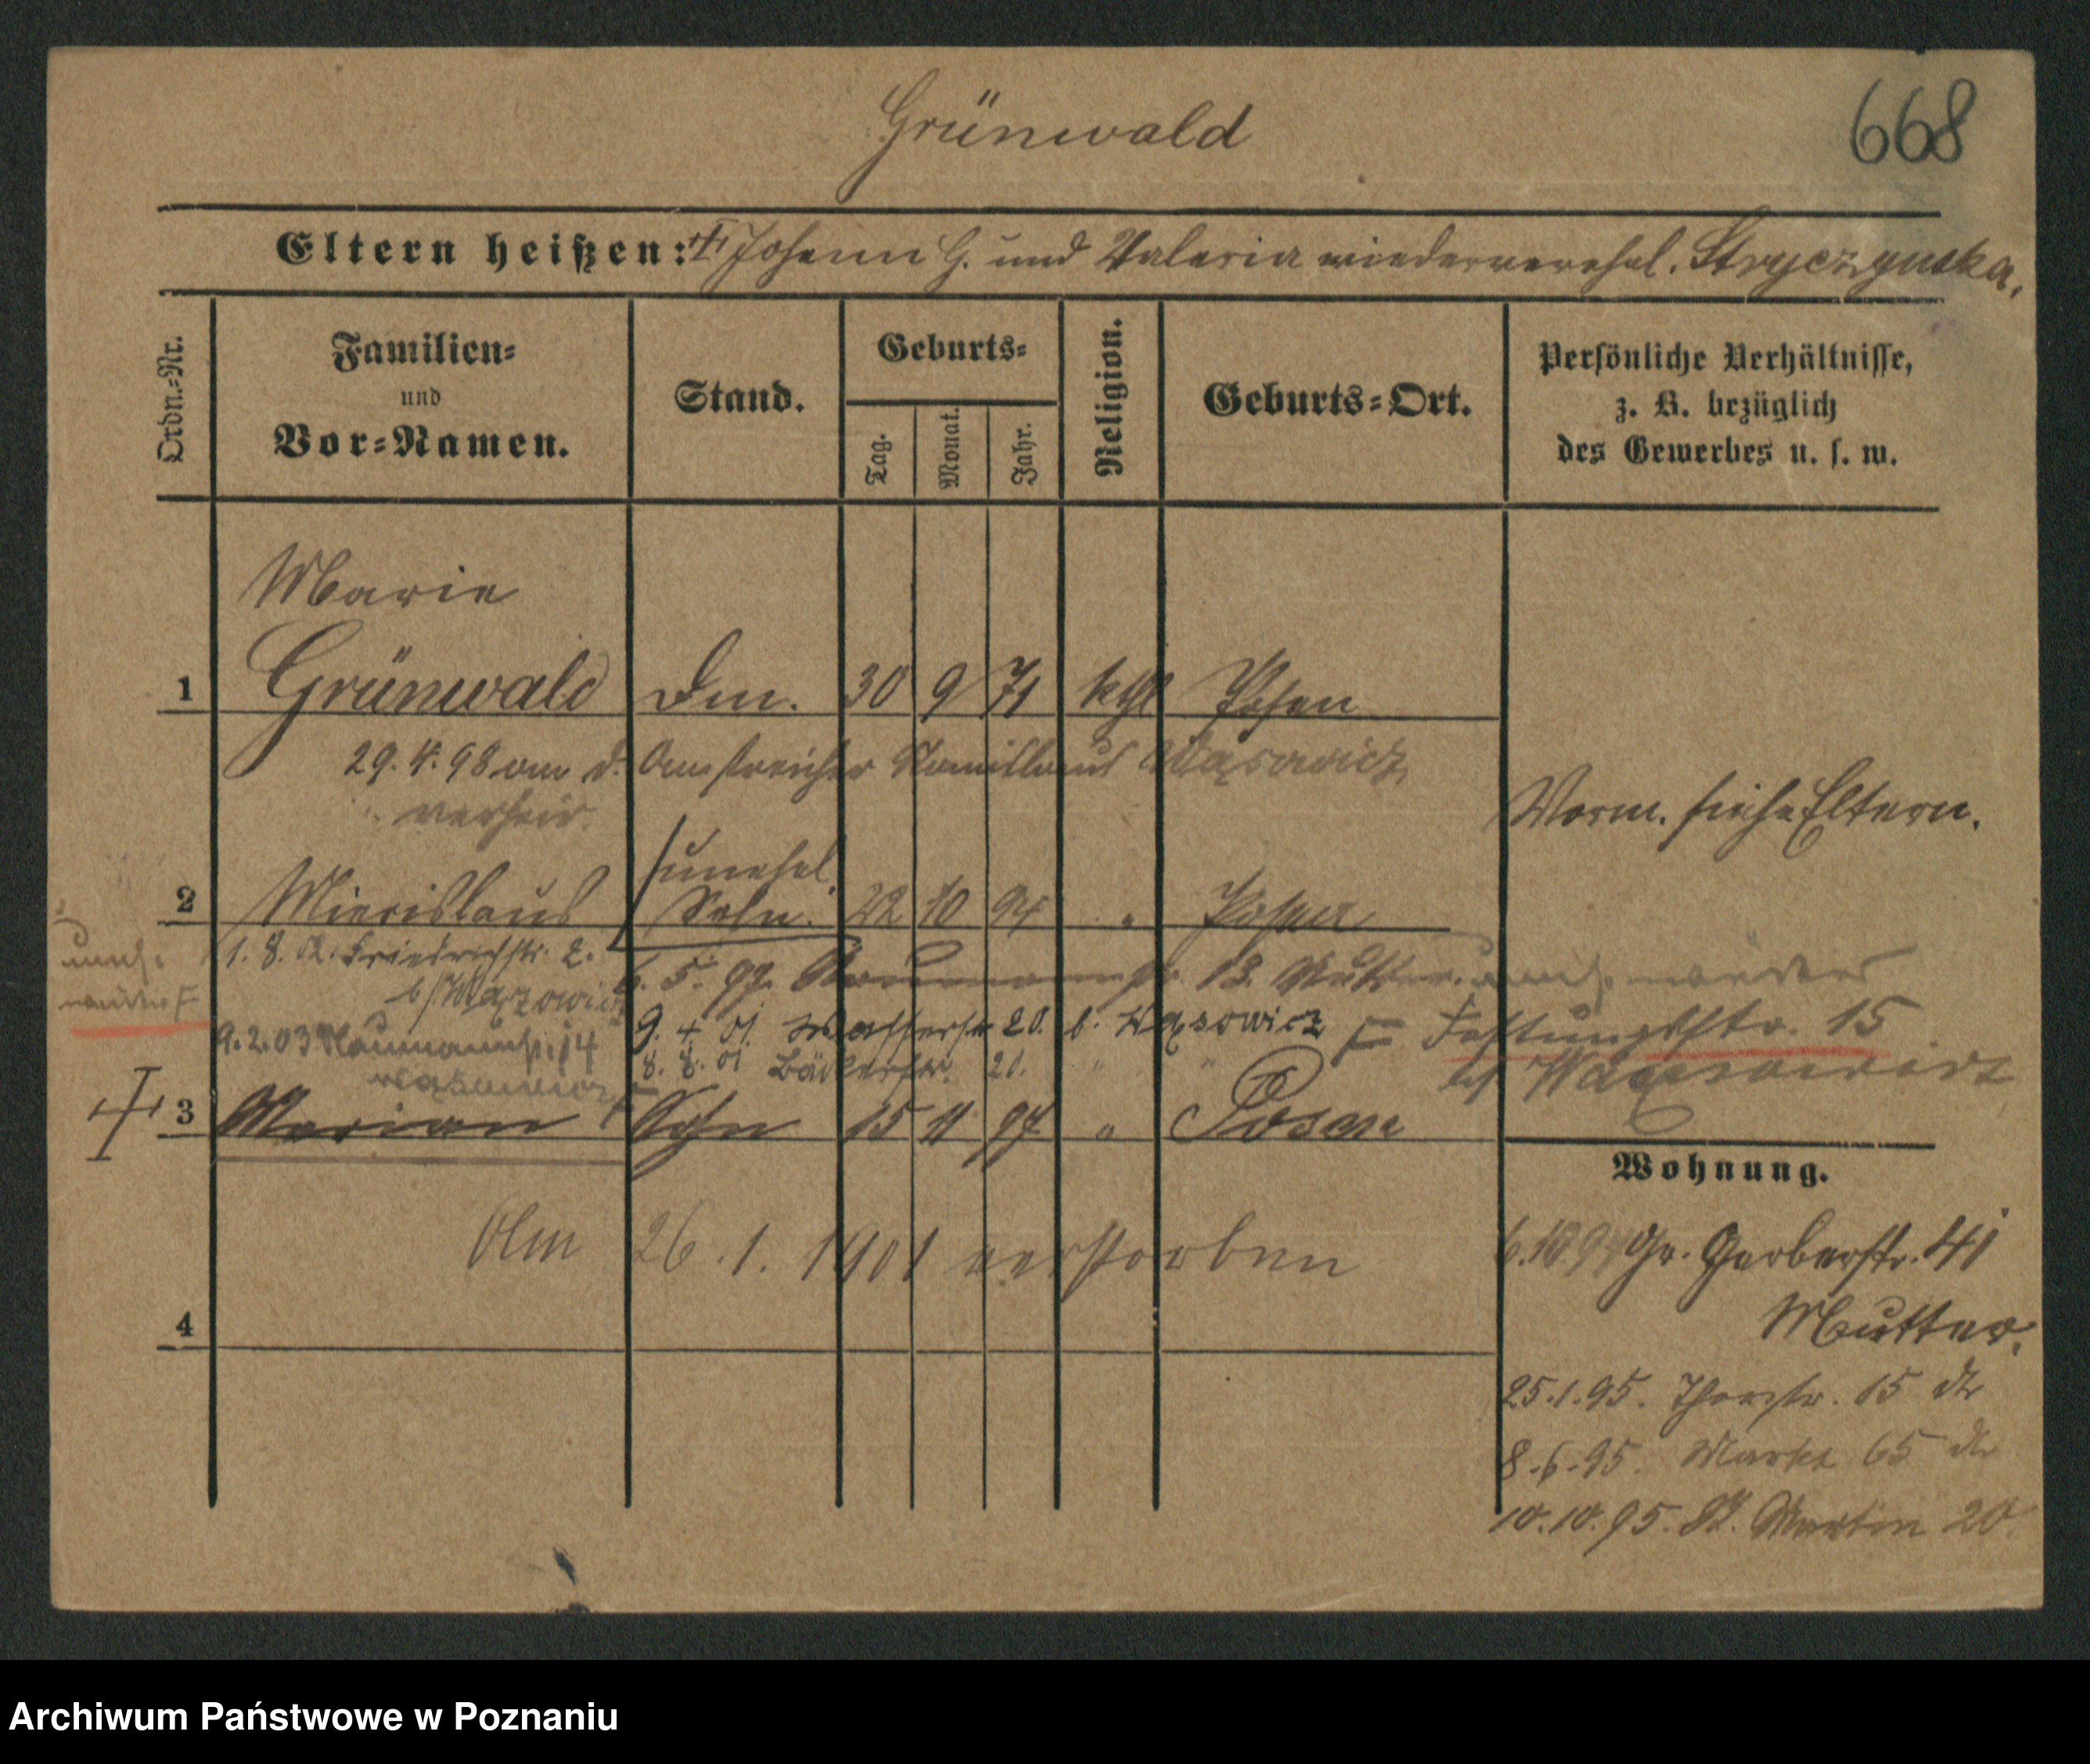 Grünwald
668
Eltern heißen: Johann G. und Valeria wiederverehel. Stryczynska,
Ordn.-Nr.
Familien-
und
Vor-Namen.
Stand.
Geburts-
Tag.
Monat.
Jahr.
Religion.
Geburts-Ort.
Persönliche Verhältnisse,
z. B. bezüglich
des Gewerbes u. s. w.
Marie
1 Grünwald 30 9 71 kth Posen
29. 4. 98 verheir.
Vorm. siehe Eltern.
unehel.
2 Miecislaus 22 10 94 " Posen
1. 8. 02. Friedrichstr. 2.
6. 5. 97. Naumannstr. 13. Mutter
9. 4. 01. Wasserstr. 20. b. Wąsowicz
Festungsstr. 15
9. 2. 03 Naumannstr. 14
8. 8. 01 Bäckerstr. 20. " "
bei Wąsowicz
3 Marian Sohn 15 11 97 " Posen
Wohnung.
Am 26. 1. 1901 verstorben
6.10.94 Gr. Gerberstr. 41
Mutter.
4
25.1.95. Thorstr. 15
8.6.95. Markt 65
10.10.95. St. Martin 20.
Archiwum Państwowe w Poznaniu